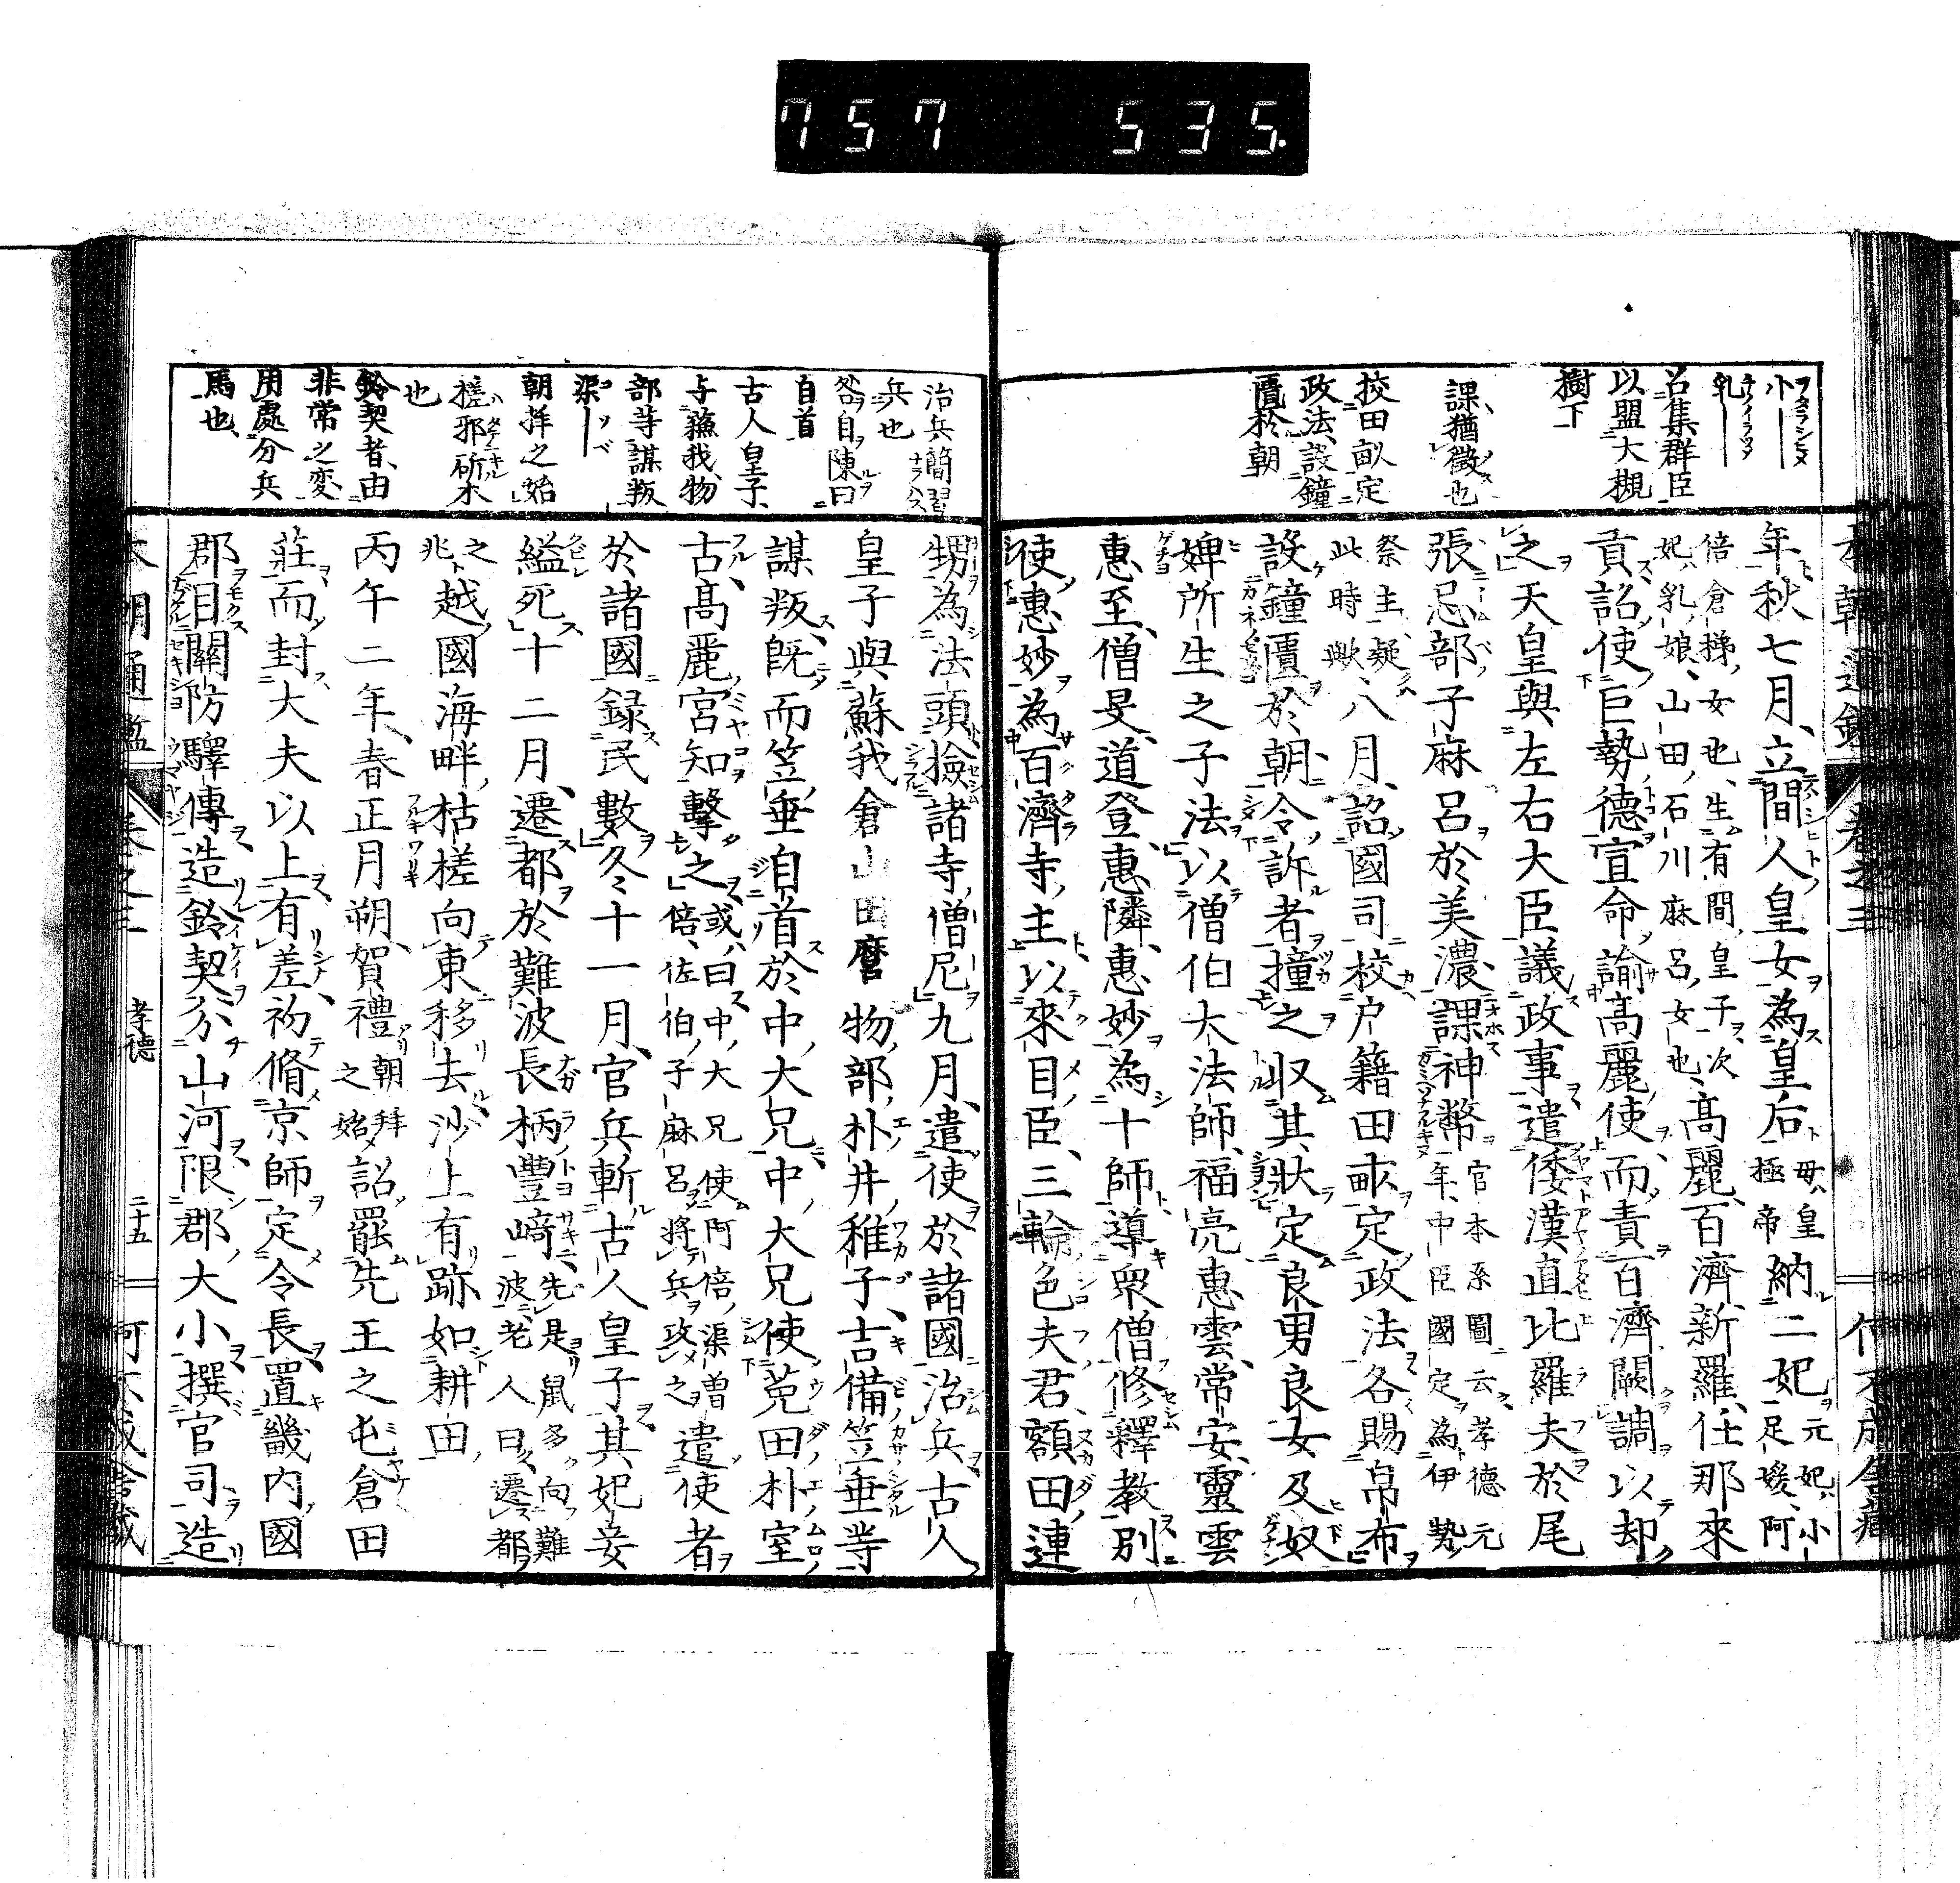 757 535.
小
乳
召集群臣
以盟大槻
樹下
課、猶徵也
挍田畝定
政法、設鐘
匱於朝
年秋七月、立間人皇女為皇后母、皇極帝納二妃元妃、小足媛、阿
倍倉梯女也、生有間皇子、次
妃、乳娘、山田石川麻呂女也、高麗、百濟、新羅、任那來
貢、詔使巨勢德宣命諭高麗使、而責百濟闕調以却
之天皇與左右大臣議政事、遣倭漢直比羅夫於尾
張、忌部子麻呂於美濃、課神幣官本系圖云、孝德元年、中臣國定為伊勢
祭主、疑
此時歟、八月、詔國司校戸籍田畝、定政法、各賜帛布
設鐘匱於朝、令訴者撞之、収其狀、定良男良女及奴
婢所生之子法、以僧伯大法師、福亮、惠雲、常安、靈雲
惠至、僧旻、道登、惠隣、惠妙為十師、導衆僧、修釋教、別
使惠妙為百濟寺主、以來目臣、三輪色夫君、額田連
治兵簡習
兵也
咎自陳曰
自首
古人皇子、
与蘇我、物
部等謀叛
渠
朝拜之始
槎、邪斫木
也
鈴契者、由
非常之変
用處分兵
馬也、
甥為法頭、撿諸寺僧尼、九月、遣使於諸國治兵、古人
皇子與蘇我倉山田麿物部朴井稚子、吉備笠垂等
謀叛、既而笠垂自首於中大兄、中大兄使菟田朴室
古、高麗宮知擊之或曰、中大兄使阿倍渠曾倍、佐伯子麻呂將兵攻之遣使者
於諸國錄民數、冬十一月、官兵斬古人皇子、其妃妾
縊死、十二月、遷都於難波長柄豐﨑、先是鼠多向難波、老人曰、遷都
之
兆越國海畔、枯槎向東移去、沙上有跡、如耕田
丙午二年、春正月朔、賀禮朝拜之始詔罷先王之屯倉田
莊、而封大夫以上有差、初脩京師、定令長、置畿內國
郡目關防驛傳、造鈴契、分山河、限郡大小、撰官司、造
本朝通鑑 卷之三 孝德 二十五